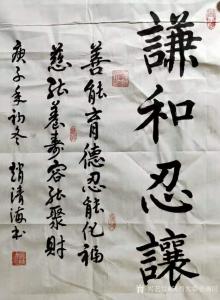 謙和忍讓
善能育德忍能化福
慈能養壽容能聚財
庚子年初冬趙清海书